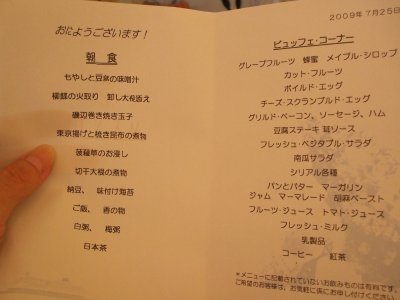 おはようございます！
朝 食
もやしと豆腐の味噌汁
柳鰈の火取り 卸し大根添え
磯辺巻き焼き玉子
東京揚げと梳き昆布の煮物
菠薐草のお浸し
切干大根の煮物
納豆、 味付け海苔
ご飯、 香の物
白粥、 梅粥
日本茶
2009年 7月25日
ビュッフェ・コーナー
グレープフルーツ 蜂蜜 メイプル・シロップ
カット・フルーツ
ボイルド・エッグ
チーズ・スクランブルド・エッグ
グリルド・ベーコン、ソーセージ、ハム
豆腐ステーキ 茸ソース
フレッシュ・ベジタブル・サラダ
南瓜サラダ
シリアル各種
パンとバター マーガリン
ジャム マーマレード 胡麻ペースト
フルーツ・ジュース トマト・ジュース
フレッシュ・ミルク
乳製品
コーヒー 紅茶
＊メニューに記載されていないお飲みものは有料です。
ご希望のお客様は、お気軽に係にお申し付けください